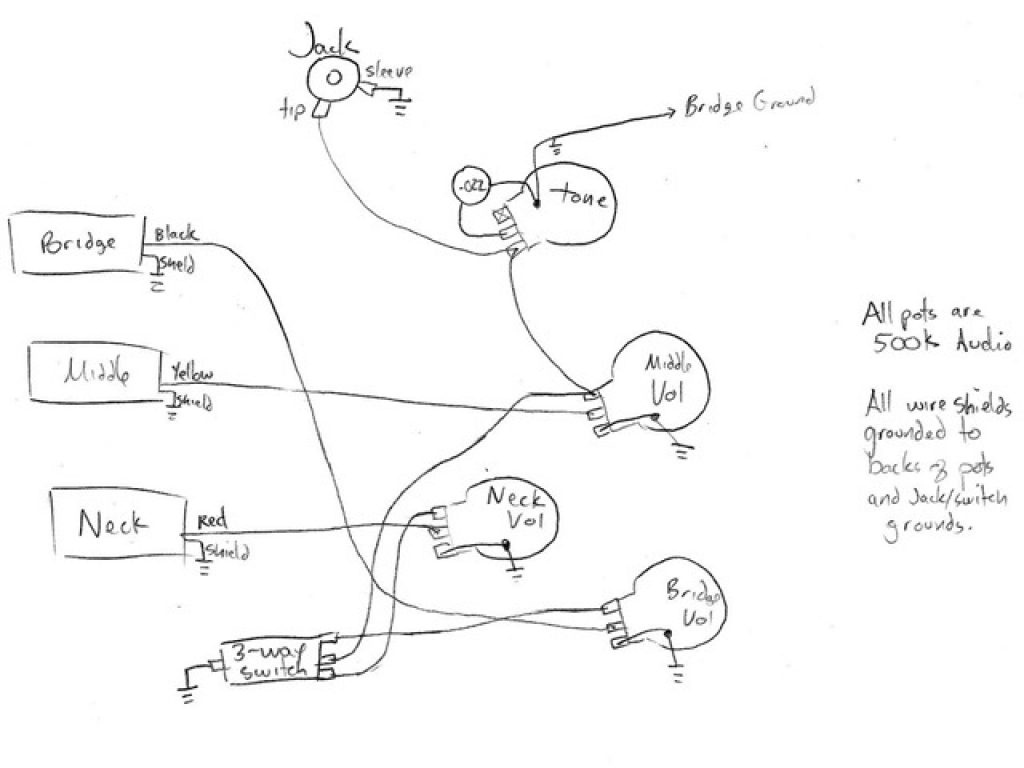 Jack
sleeve
tip
Bridge Ground
.022
tone
Bridge
Black
shield
Middle
Yellow
shield
Middle
Vol
All pots are
500k Audio
All wire shields
grounded to
backs of pots
and Jack/switch
grounds.
Neck
Red
shield
Neck
Vol
Bridge
Vol
3-way
switch